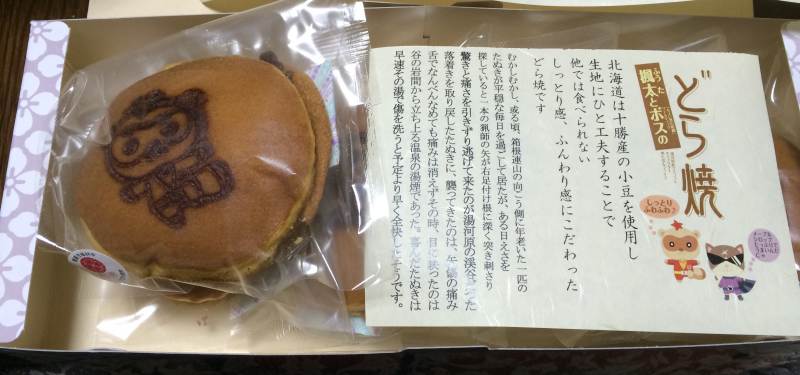 どら焼
楓太とボスの
ふうた
しっとり
ふわふわ?
北海道は十勝産の小豆を使用し
生地にひと工夫することで
他では食べられない
しっとり感、ふんわり感にこだわった
どら焼です
むかしむかし、或る頃、箱根連山の向こう側に年老いた一匹の
たぬきが平穏な毎日を過ごして居たが、ある日えさを
探していると一本の猟師の矢が右足付け根に深く突き刺さり
驚きと痛さを引きずり逃げて来たのが湯河原の渓谷だった
落着きを取り戻したたぬきに、襲ってきたのは、矢傷の痛み
舌でなんべんなめても痛みは消えずその時、目に映ったのは
谷の岩間から立ち上る温泉の湯煙であった。喜んだたぬきは
早速その湯で傷を洗うと予定より早く全快したそうです。